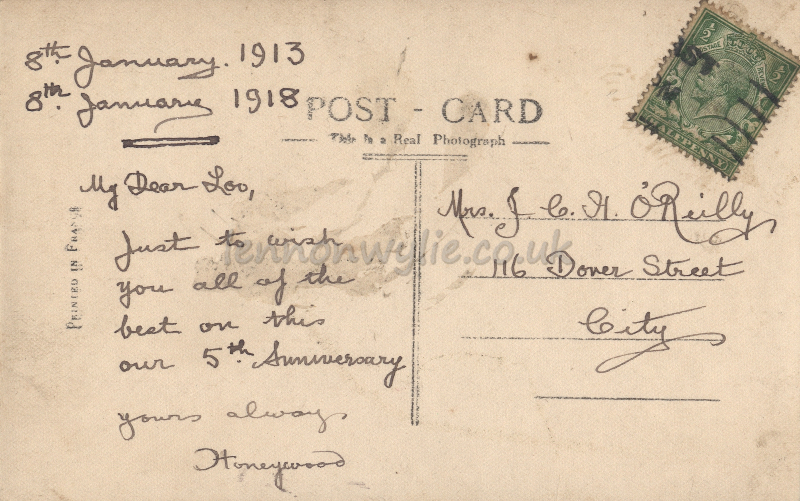 8th January. 1913
8th January 1918
POST - CARD
This is a Real Photograph
PRINTED IN FRANCE
My Dear Loo,
Just to wish
you all of the
best on this
our 5th Anniversary
yours always
Honeywood
Mrs. J C. H. O'Reilly
116 Dover Street
City
lennonwylie.co.uk
½ ½
POSTAGE
HALFPENNY